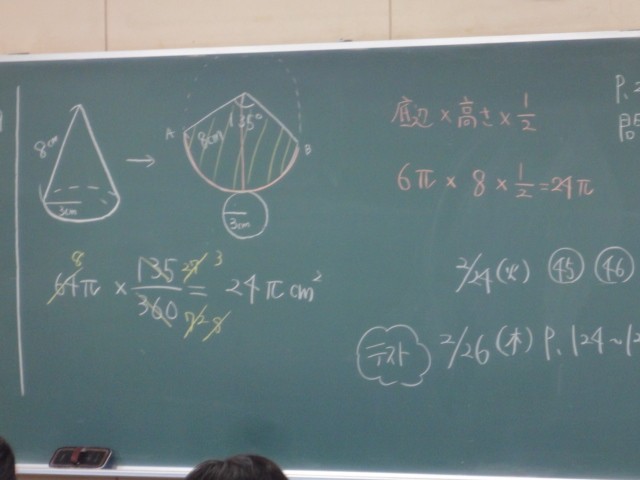 8cm
3cm
→
A
135°
8cm
B
3cm
64π × 135/360 = 24πcm²
8
27 3
72 8
底辺 × 高さ × 1/2
6π × 8 × 1/2 = 24π
2/24(火) ㊺ ㊻
テスト 2/26(木) P.124~12
P.
問